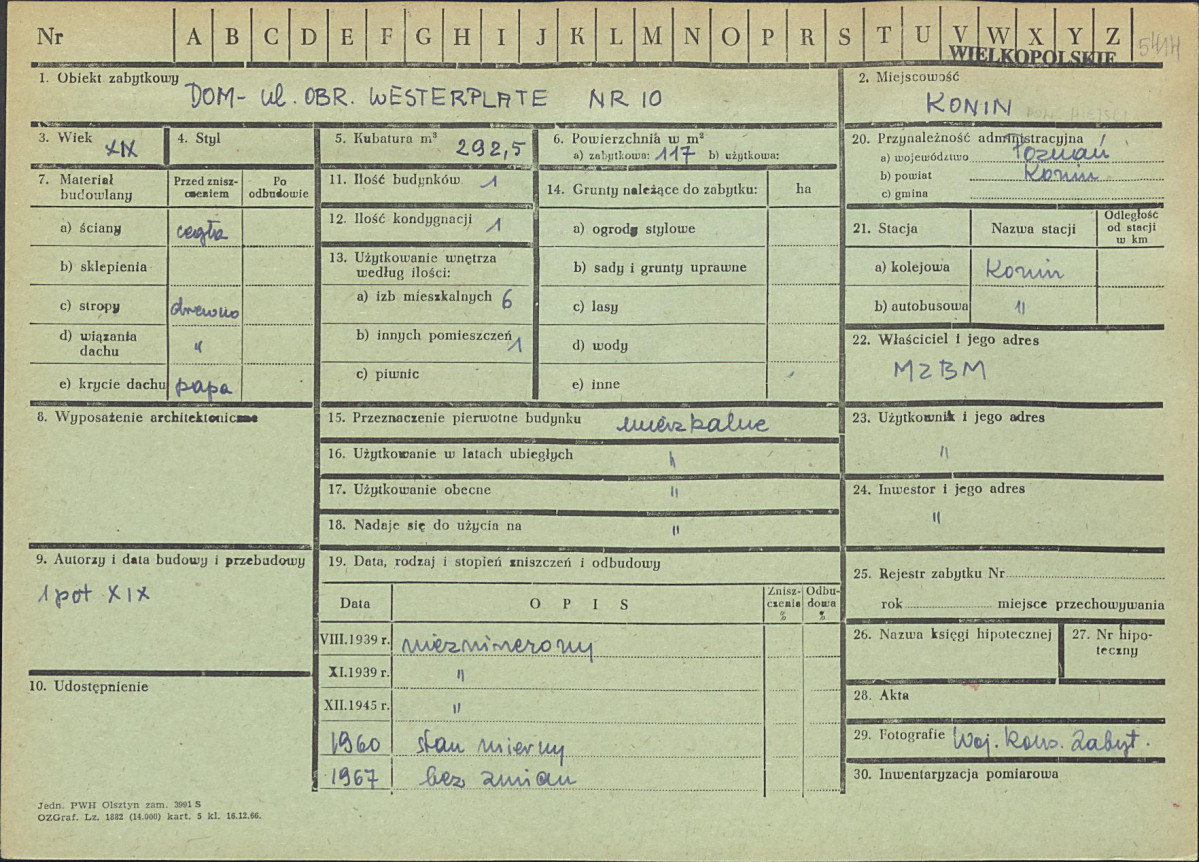 Nr A B C D E F G H I J K L M N O P R S T U V W X Y Z 5414
WIELKOPOLSKIE
1. Obiekt zabytkowy
DOM - ul. OBR. WESTERPLATE NR 10
2. Miejscowość
KONIN
3. Wiek XIX
4. Styl
5. Kubatura m³ 292,5
6. Powierzchnia w m²
a) zabytkowa: 117 b) użytkowa:
20. Przynależność administracyjna
a) województwo Poznań
b) powiat Konin
c) gmina
7. Materiał budowlany
Przed zniszczeniem
Po odbudowie
a) ściany cegła
b) sklepienia
c) stropy drewno
d) wiązania dachu "
e) krycie dachu papa
11. Ilość budynków 1
12. Ilość kondygnacji 1
13. Użytkowanie wnętrza
według ilości:
a) izb mieszkalnych 6
b) innych pomieszczeń 1
c) piwnic
14. Grunty należące do zabytku: ha
a) ogrody stylowe
b) sady i grunty uprawne
c) lasy
d) wody
e) inne
21. Stacja
Nazwa stacji
Odległość
od stacji
w km
a) kolejowa Konin
b) autobusowa "
22. Właściciel i jego adres
MZBM
8. Wyposażenie architektoniczne
15. Przeznaczenie pierwotne budynku mieszkalne
16. Użytkowanie w latach ubiegłych "
17. Użytkowanie obecne "
18. Nadaje się do użycia na "
23. Użytkownik i jego adres
"
24. Inwestor i jego adres
"
9. Autorzy i data budowy i przebudowy
1 poł XIX
19. Data, rodzaj i stopień zniszczeń i odbudowy
Data
O P I S
Zniszczenia %
Odbudowa %
VIII.1939 r.
XI.1939 r. "
XII.1945 r. "
1960 stan mierny
1967 bez zmian
25. Rejestr zabytku Nr
rok miejsce przechowywania
26. Nazwa księgi hipotecznej
27. Nr hipoteczny
10. Udostępnienie
28. Akta
29. Fotografie Woj. Kons. Zabyt.
30. Inwentaryzacja pomiarowa
Jedn. PWH Olsztyn zam. 3991 S
OZGraf. Lz. 1882 (14.000) kart. 5 kl. 16.12.66.